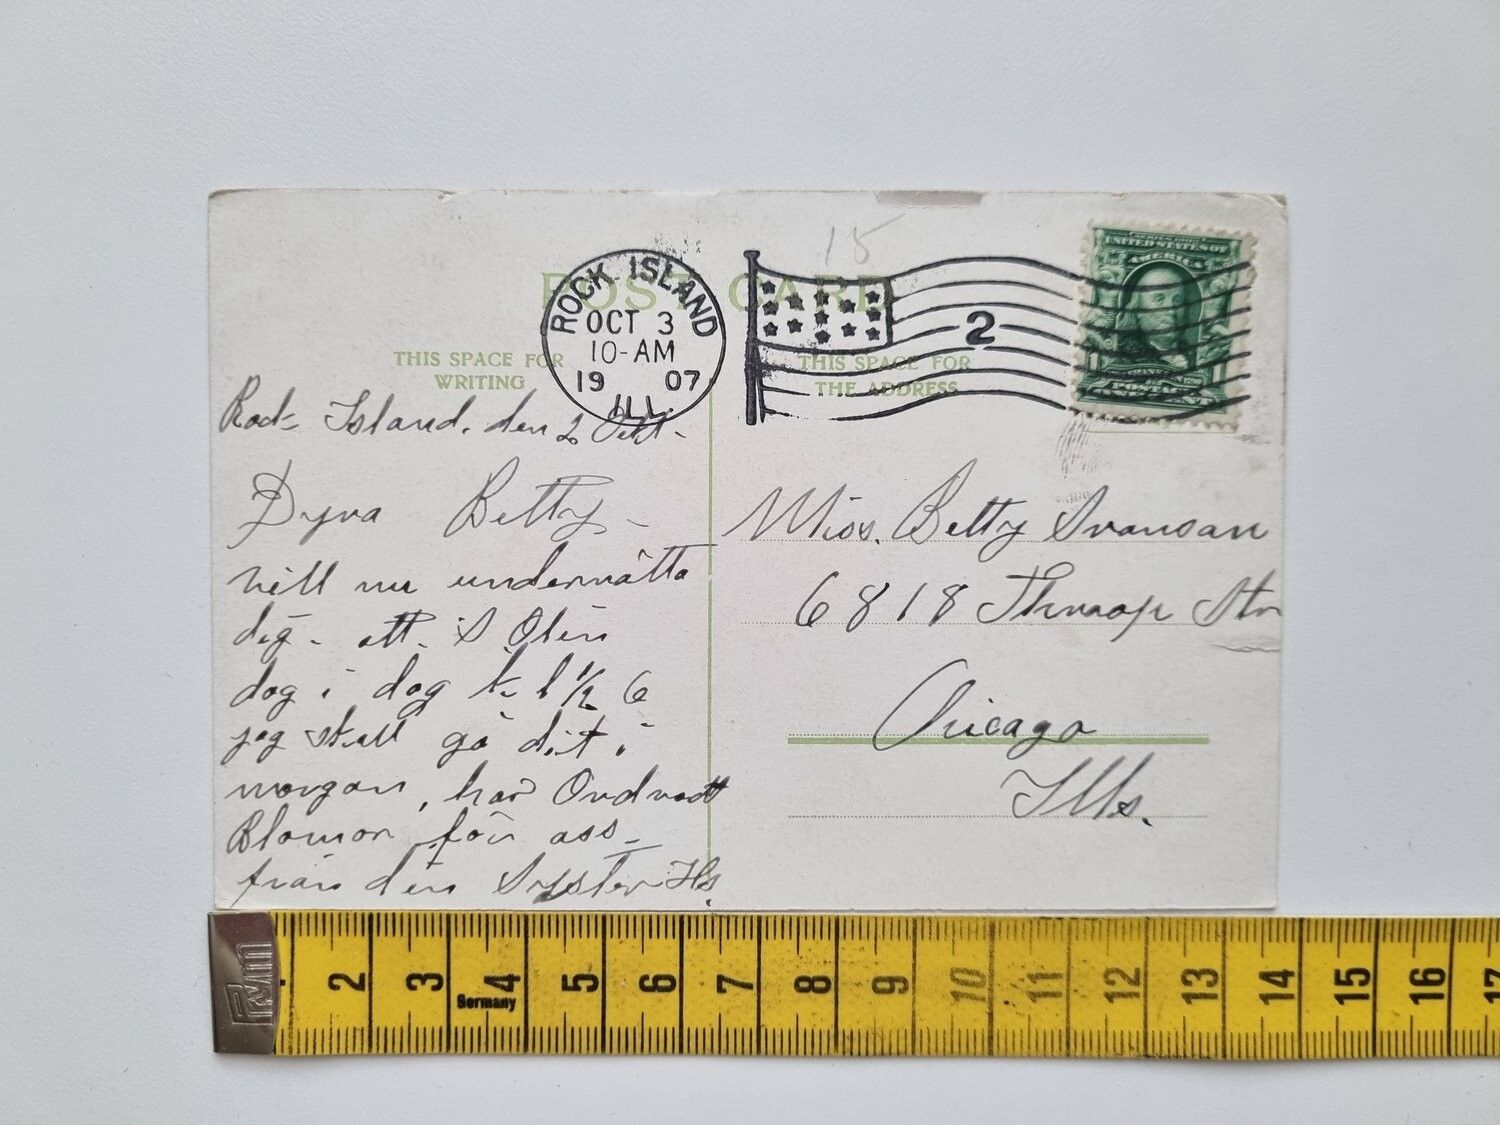 15
POST CARD
ROCK ISLAND
OCT 3
10-AM
19 07
ILL.
2
SERIES 1902
UNITED STATES OF
AMERICA
1 1
POSTAGE
THIS SPACE FOR
WRITING
THIS SPACE FOR
THE ADDRESS
Rock Island. den 2 Okt.
Dyra Betty -
vill nu underrätta
dig - att. S Olin
dog i dag k. 1/2 6
jag skall gå dit i
morgon, har
Blomor för oss -
från din Syster
Miss. Betty Svanson
6818 Throop Str
Chicago
Ills.
PM
Germany
2 3 4 5 6 7 8 9 10 11 12 13 14 15 16 17